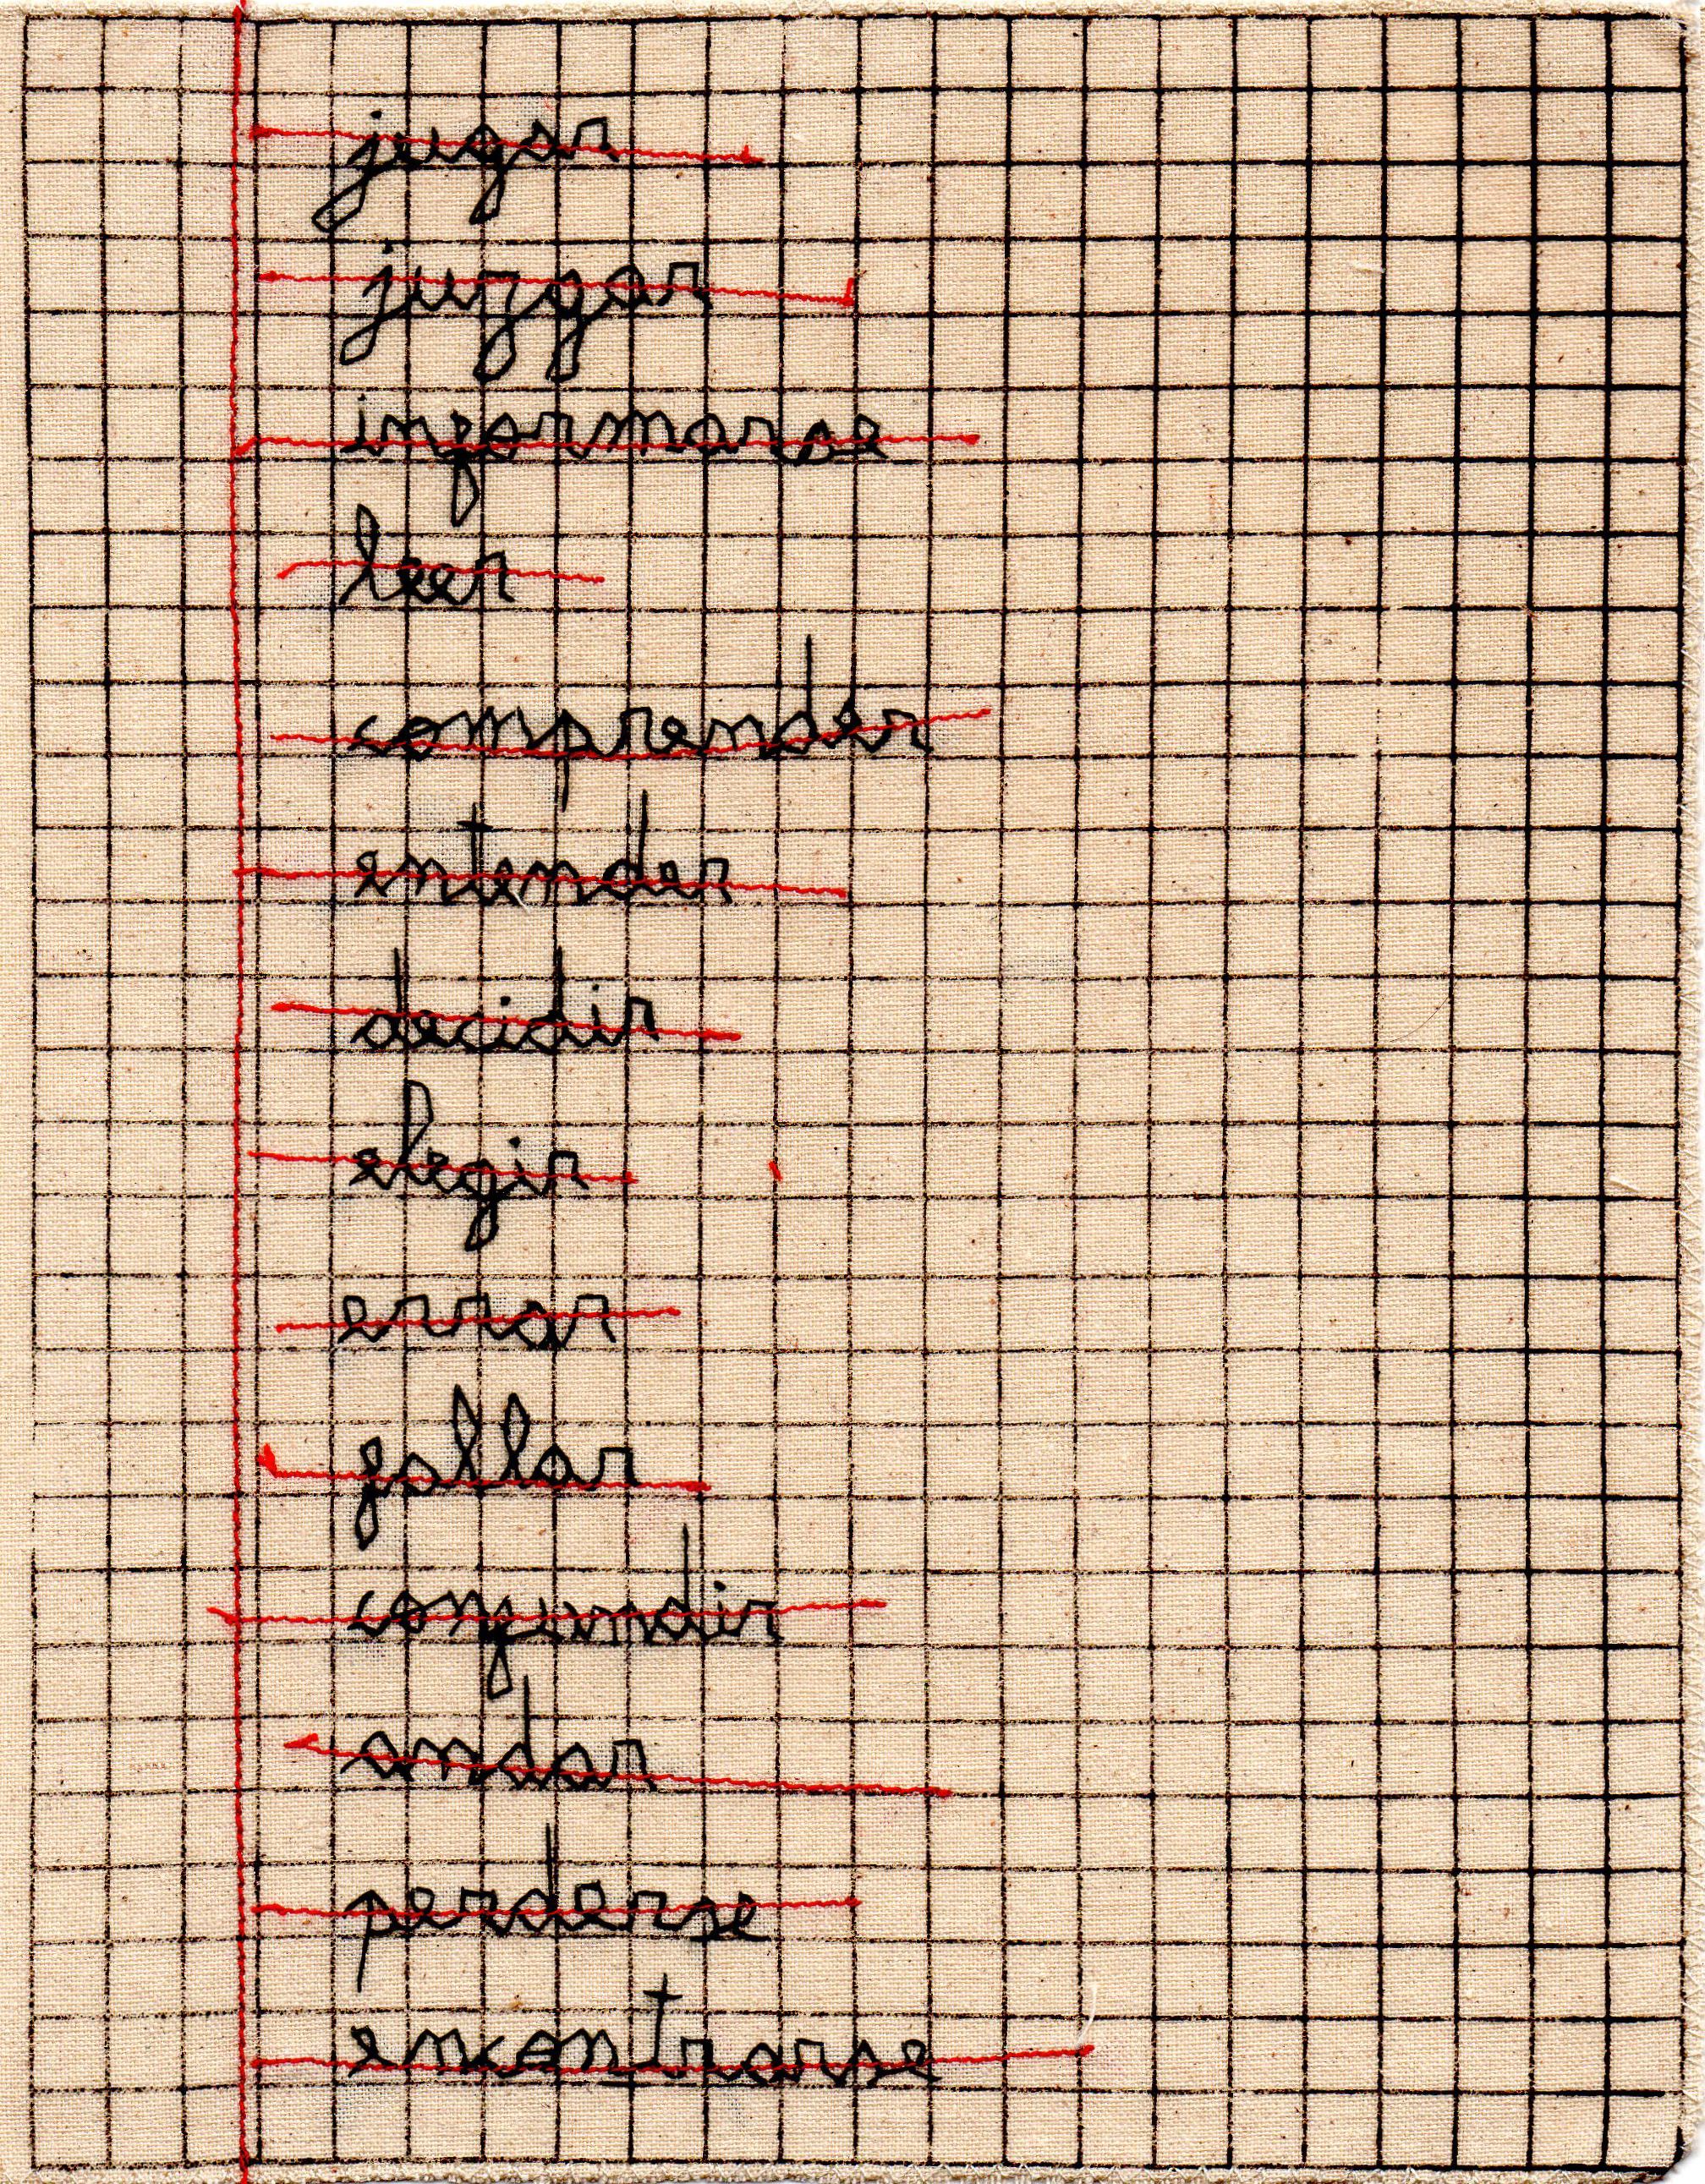 jugar
juzgar
informarse
leer
comprender
entender
decidir
elegir
errar
fallar
confundir
andar
perderse
encontrarse